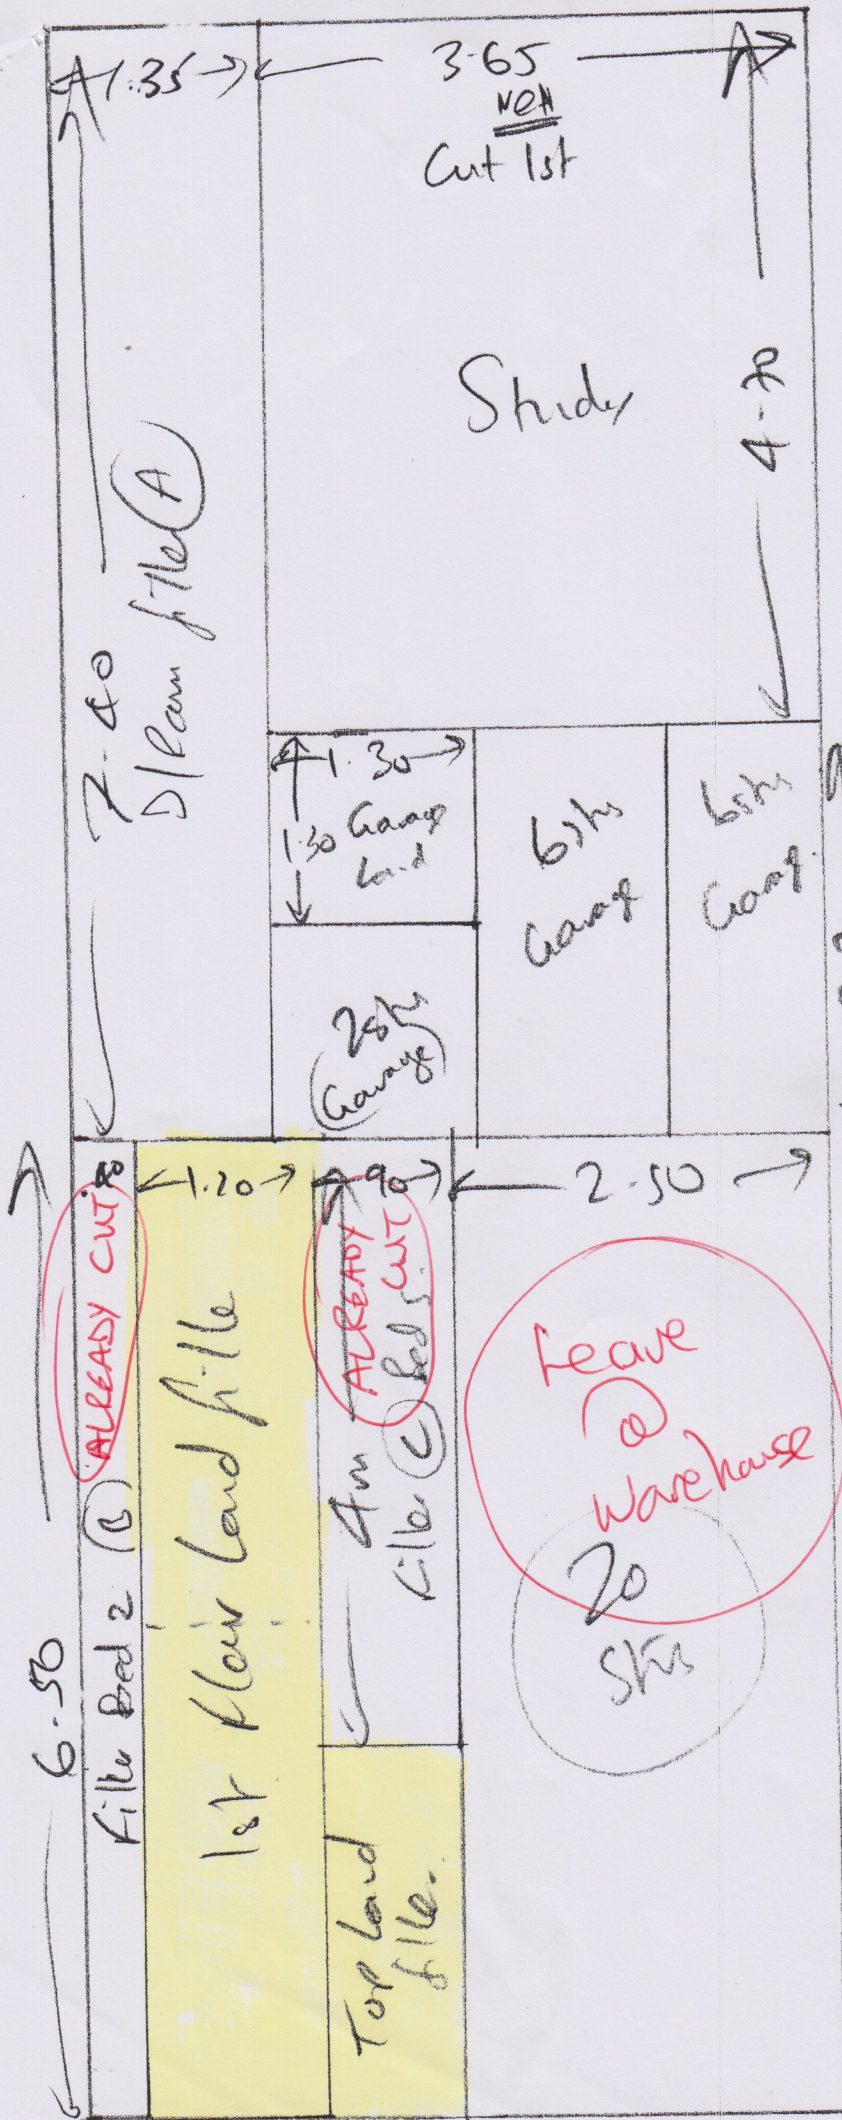 1.35
3.65
NEW
Cut 1st
Study
4.70
7.40
D/Room filler (A)
1.30
1.30 Garage
Land
6 sts
Garage
6 sts
Garage.
2 sts
(Garage)
.70
1.20
.90
2.50
ALREADY CUT
ALREADY
CUT
6.50
Filler Bed 2 (B)
1st Floor Land filler
4m
Filler (C) Bed 5
Top Land
filler.
Leave
@
Warehouse
20
Sts